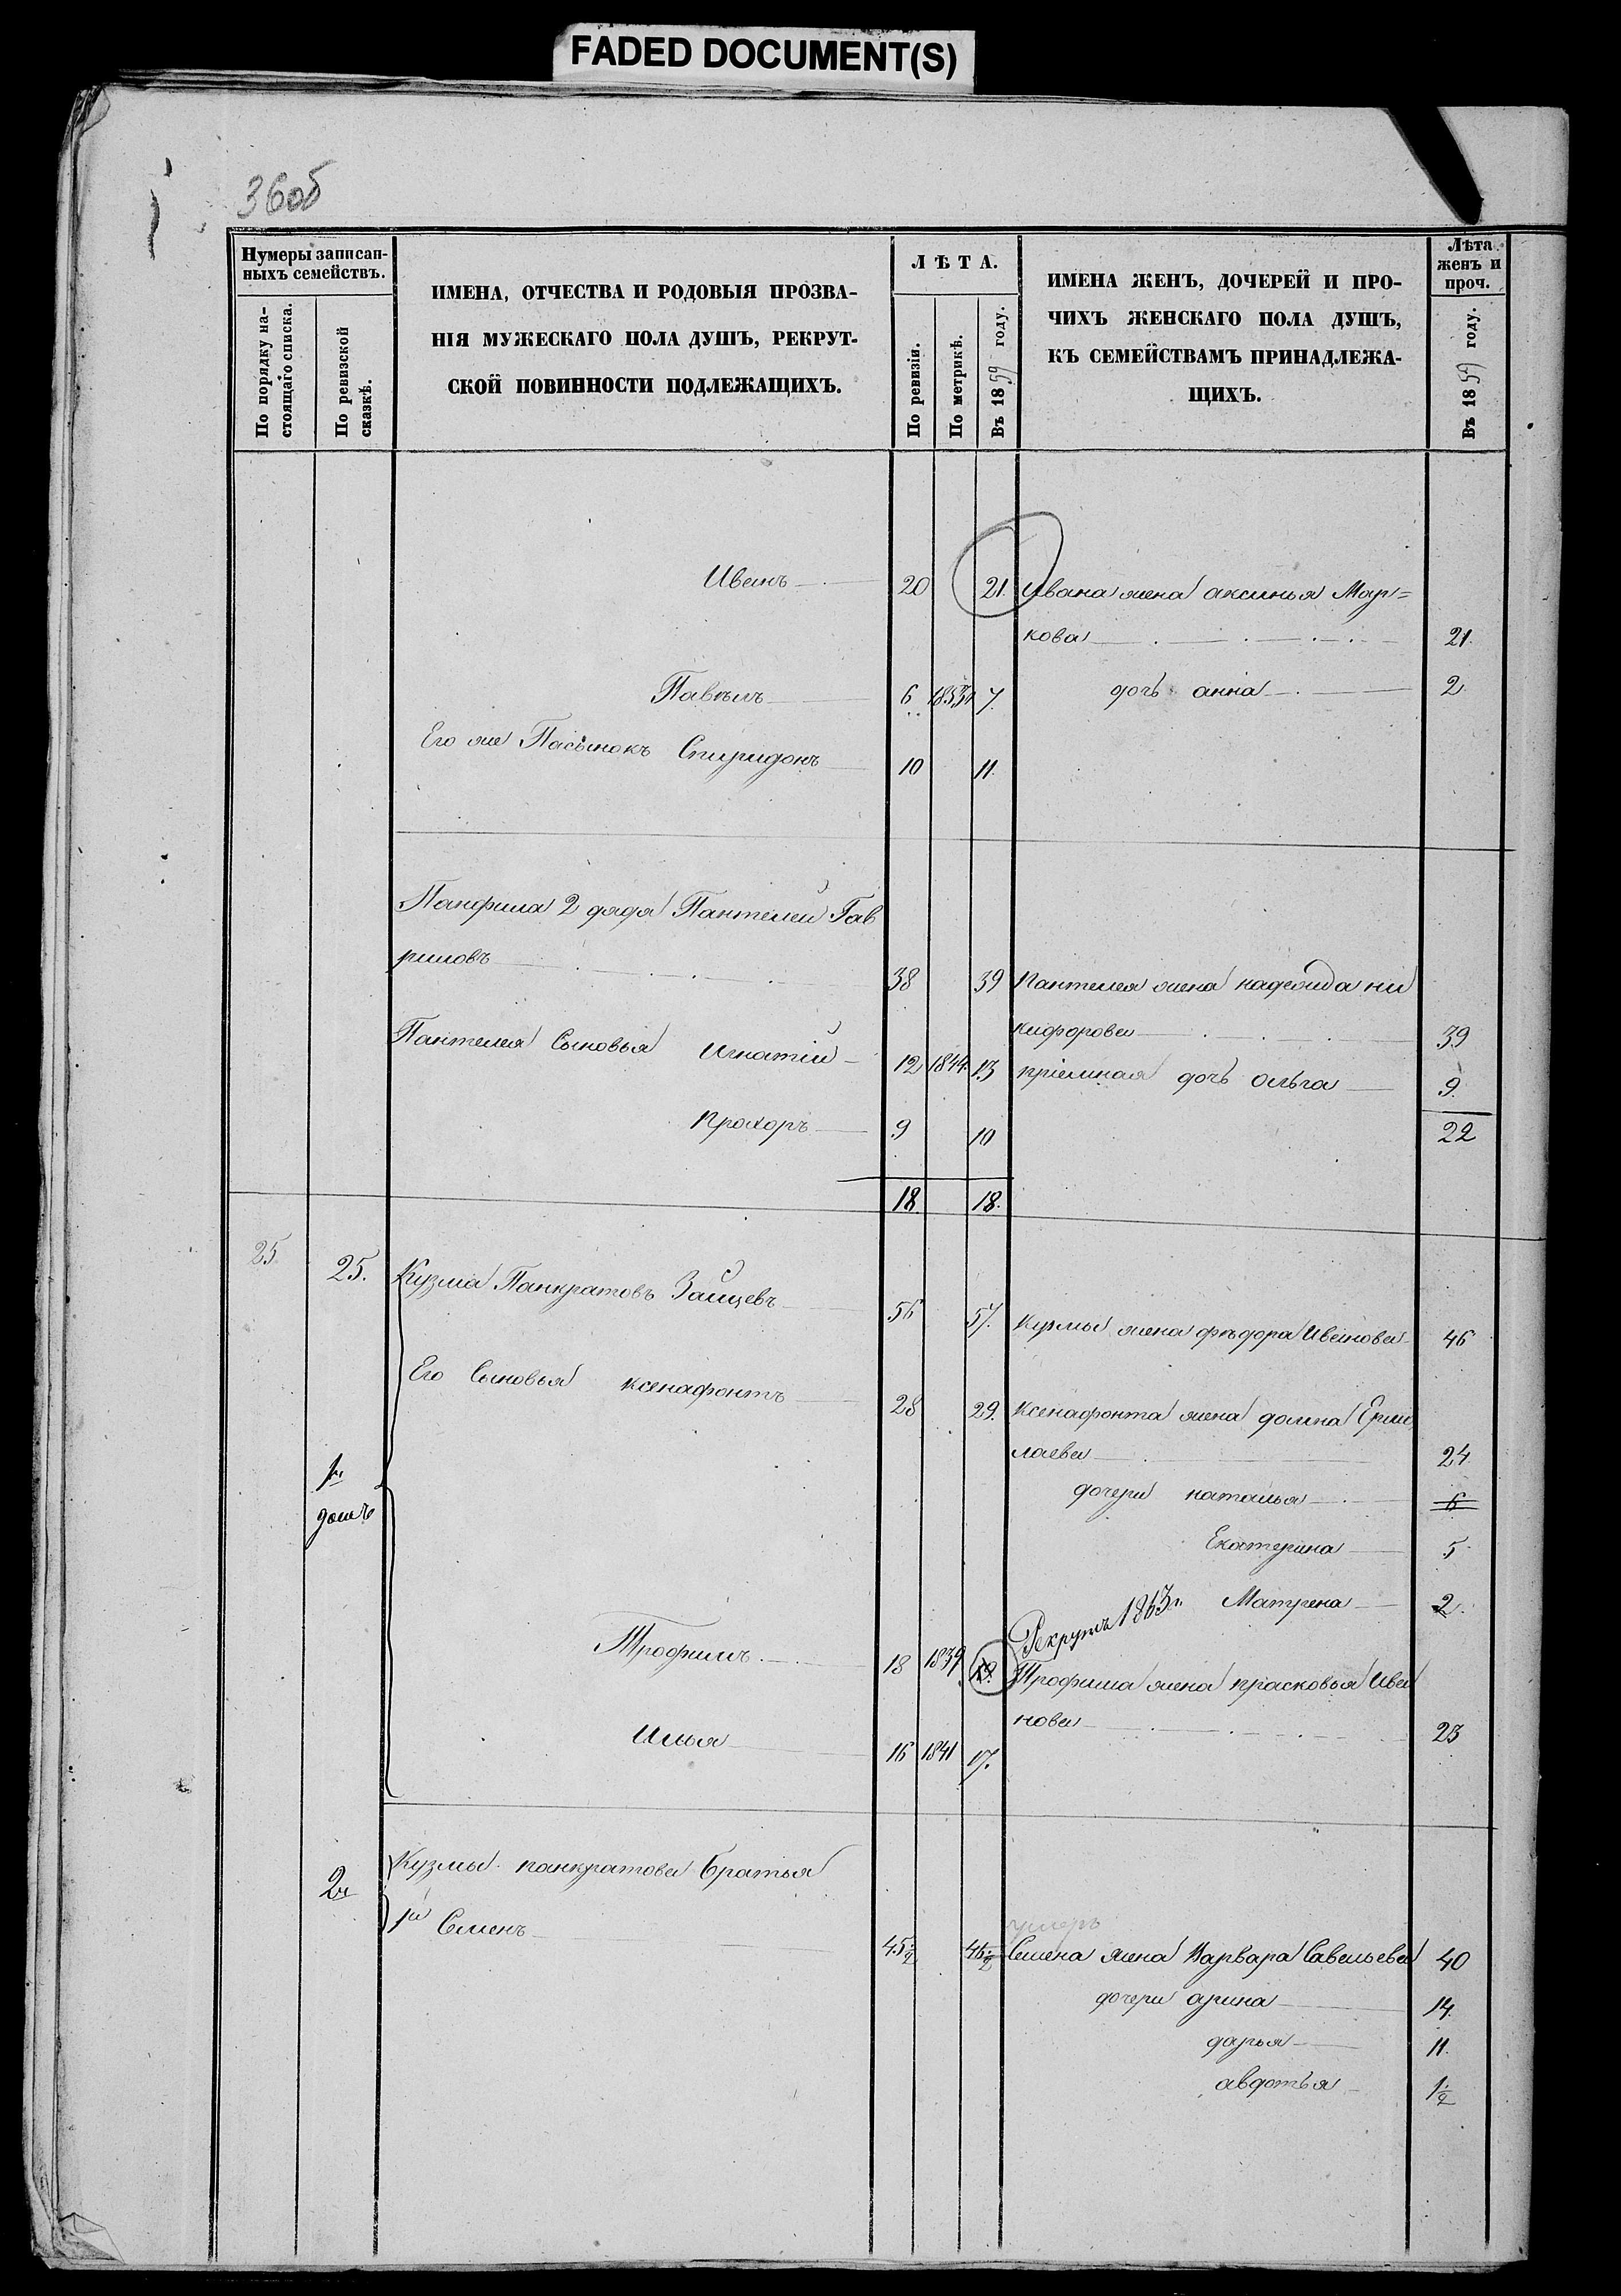 FADED DOCUMENT(S)
36об
Нумеры записан-
ныхъ семействъ.
По порядку на-
стоящаго списка.
По ревизской
сказкѣ.
ИМЕНА, ОТЧЕСТВА И РОДОВЫЯ ПРОЗВА-
НІЯ МУЖЕСКАГО ПОЛА ДУШЪ, РЕКРУТ-
СКОЙ ПОВИННОСТИ ПОДЛЕЖАЩИХЪ.
ЛѢТА.
По ревизіи.
По метрикѣ.
Въ 1859 году.
ИМЕНА ЖЕНЪ, ДОЧЕРЕЙ И ПРО-
ЧИХЪ ЖЕНСКАГО ПОЛА ДУШЪ,
КЪ СЕМЕЙСТВАМЪ ПРИНАДЛЕЖА-
ЩИХЪ.
Лѣта
женъ и
проч.
Въ 1859 году.
Иванъ 20 21. Ивана жена аксинья Мар=
кова 21.
Павелъ 6 7. дочь анна 2
Его же Пасынокъ Спиридонъ 10 11.
Панфила 2 дядя Пантелей Гав
риловъ 38 39 Пантелея жена надежда ни
кифорова 39
Пантелея Сыновья Игнатій 12 1844. 13 пріемная дочь ольга 9.
Прохоръ 9 10 22
18. 18.
25. 25. Кузма Панкратовъ Зайцевъ 56 57. Кузмы жена фѣдора Иванова 46
Его Сыновья ксенафонтъ 28 29. Ксенафонта жена домна Ерми
лаева 24
1й
домъ
дочери наталья 6
Екатерина 5
Рекрутъ 1863г. Матрена 2.
Трофимъ 18 1839 19. Трофима жена прасковья Ива
нова 23
Илья 16 1841 17.
2й Кузмы панкратова братья
1й Семенъ 45 1/2 46 1/2
умеръ
Семена жена Варвара Савельева 40
дочери арина 14.
дарья 11.
авдотья 1/2